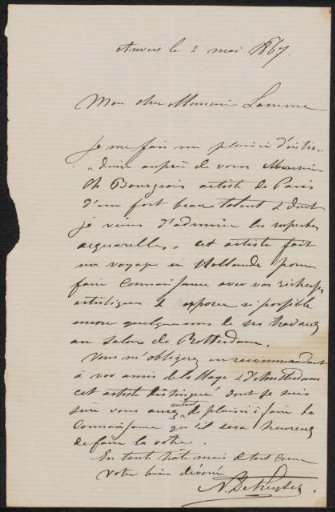 Anvers le 2 mai 1867.
Mon cher Monsieur Lamme
Je me fais un plaisir d'intro-
duire auprès de vous Monsieur
Ch Bourgeois artiste de Paris
d'un fort beau talent & dont
je viens d'admirer les superbes
acquarelles, cet artiste fait
un voyage en Hollande pour
faire connaissance avec vos richesses
artistiques & exposer si possible
encore quelques uns de ses travaux
au salon de Rotterdam.
Vous m'obligerez en recommandant
à vos amis de la Haye & d'Amsterdam
cet artiste distingué dont je suis
sure vous aurez autant de plaisir à faire la
connaissance qu'il sera heureux
de faire la votre.
En toute hâte mais de tout coeur
votre bien dévoué
N. De Keyser